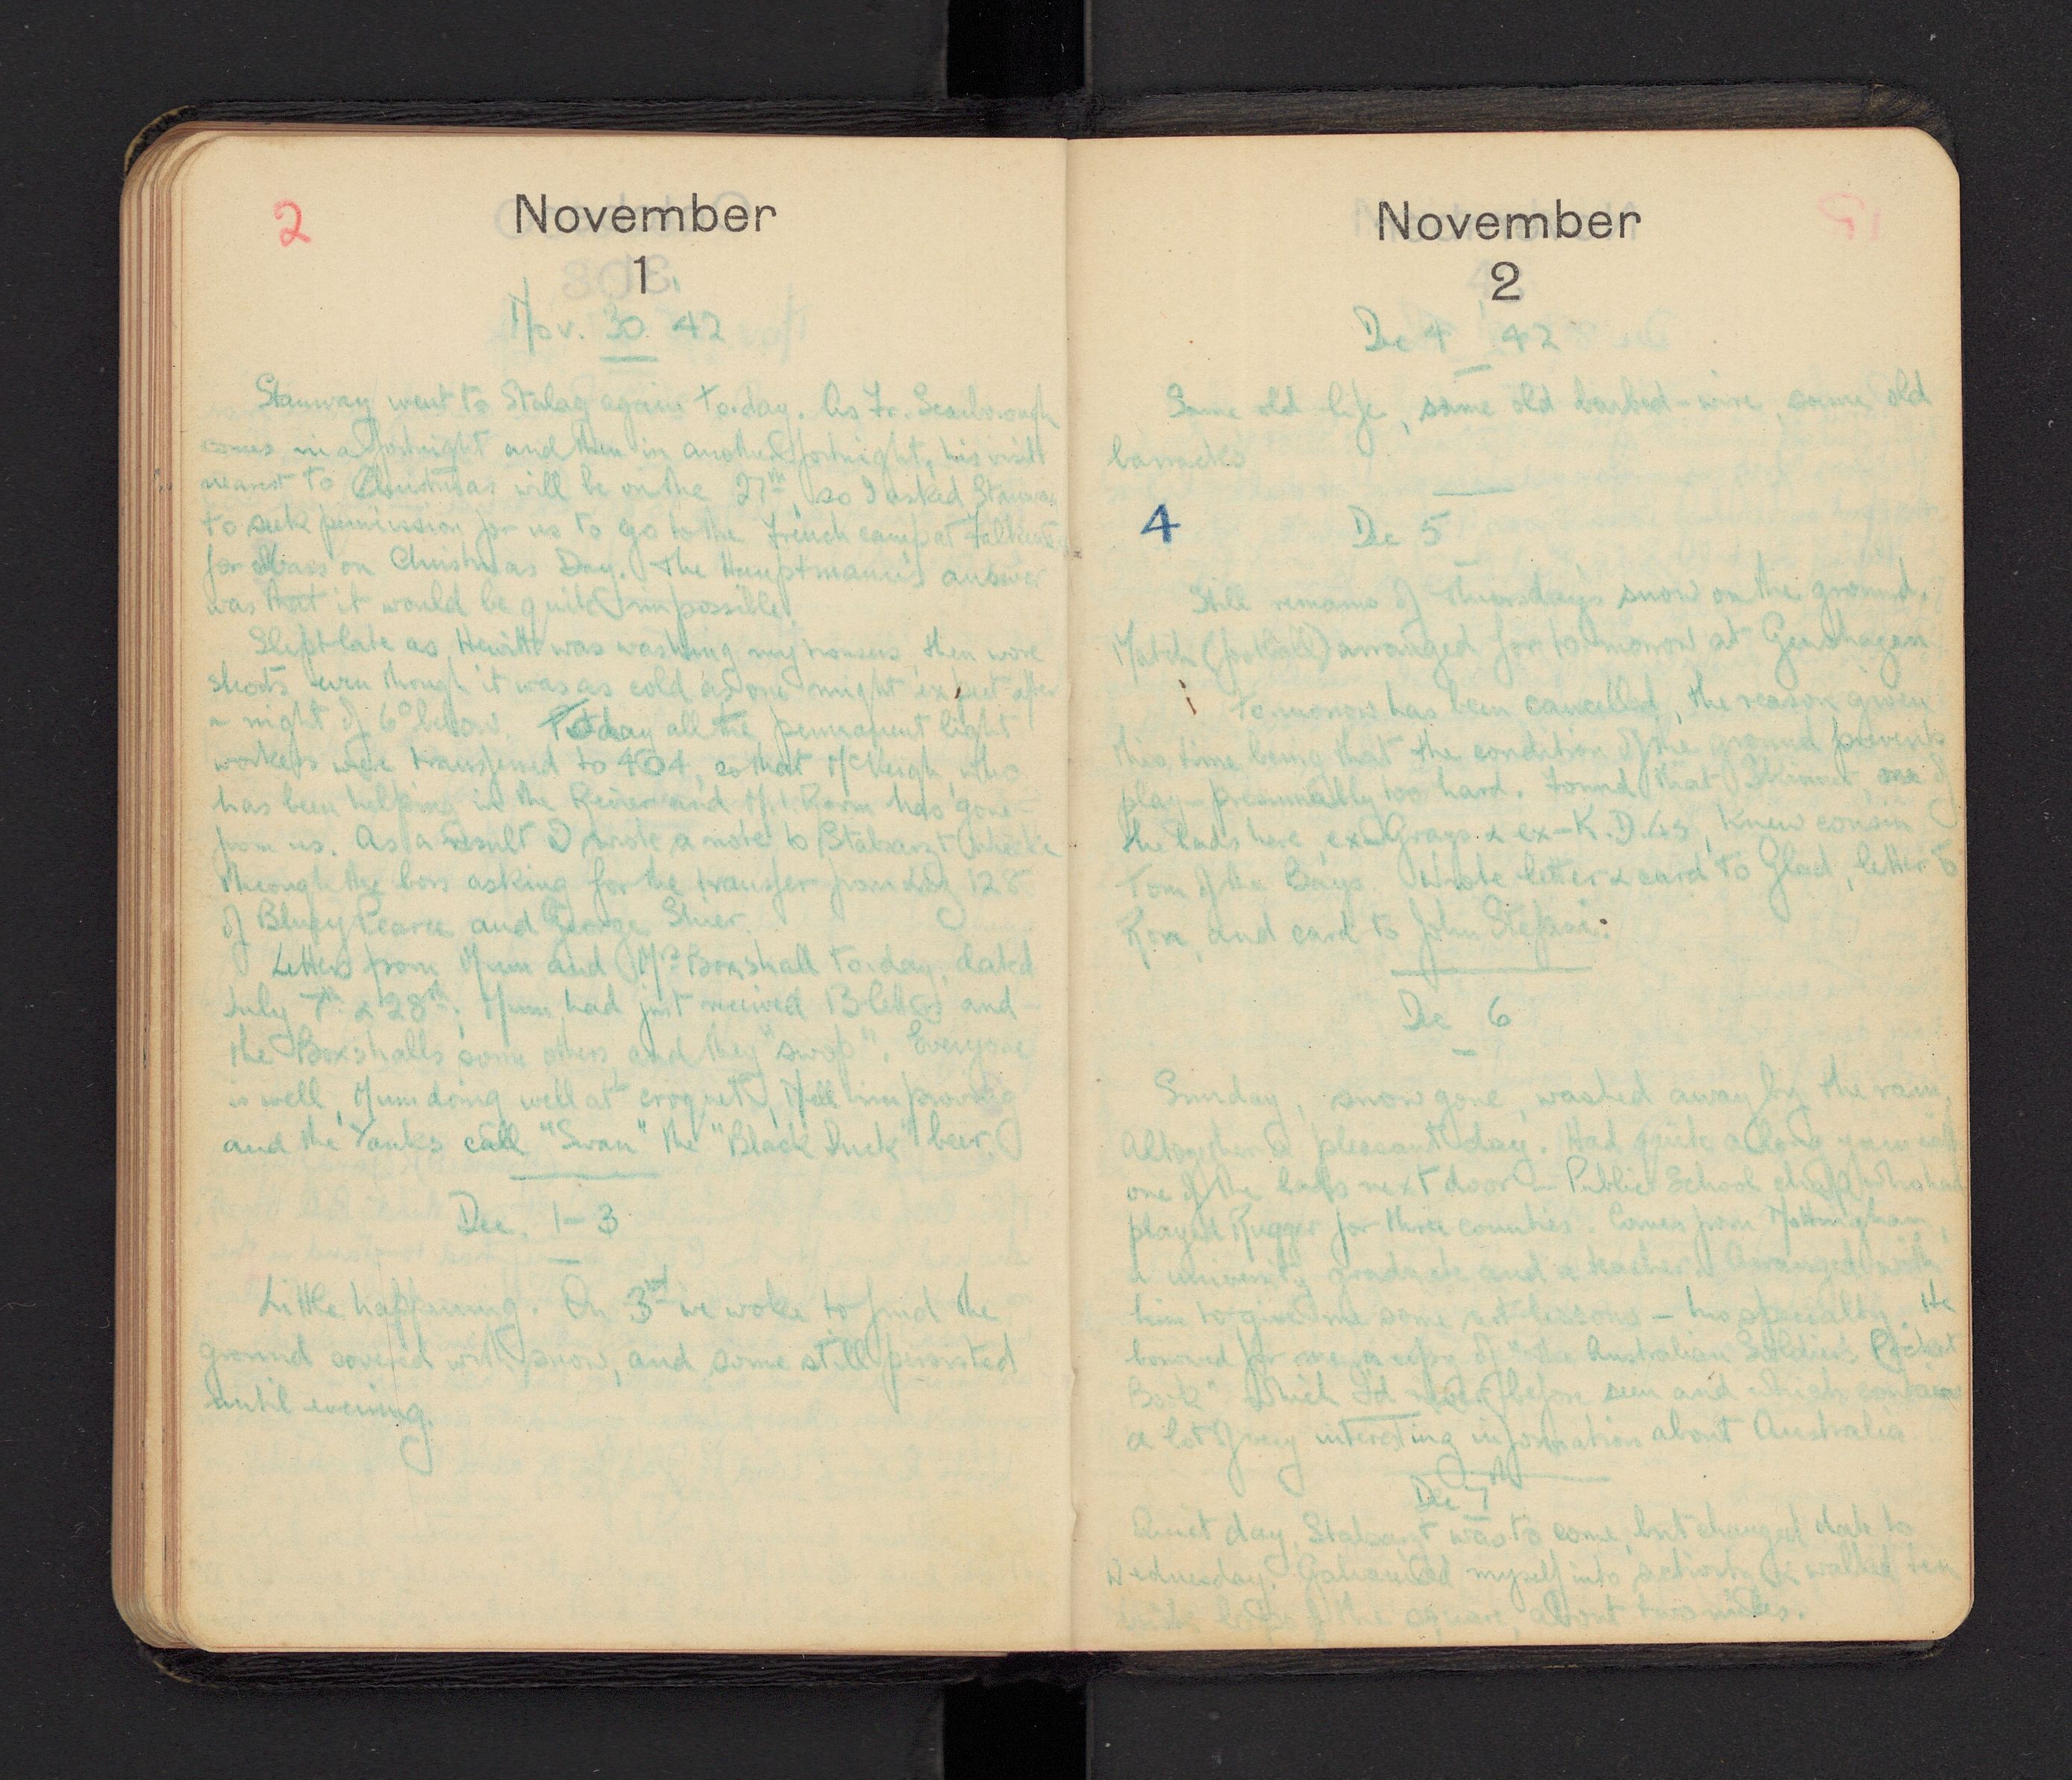 2
November
1
Nov. 30 42
Stanway went to Stalag again to-day. As Fr. Scarborough
comes in a fortnight and then in another fortnight, his visit
nearest to Christmas will be on the 27th, so I asked Stanway
to seek permission for us to go to the French camp at
for Mass on Christmas Day. The Hauptmann's answer
was that it would be quite impossible.
Slept late as Hewitt was washing my trousers, then wore
shorts even though it was as cold as one might expect after
a night of 6° below. To-day all the permanent light
workers were transferred to 404, so that McVeigh, who
has been helping in the Revier and M.I. Room has gone
from us. As a result I wrote a note to Stabsarzt
through the boss asking for the transfer from 128
of Bluey Pearce and George Shier.
Letters from Mum and Mrs Boxshall to-day, dated
July 7th & 28th; Mum had just received 13 letters and
the Boxshalls some others, and they "swop". Everyone
is well, Mum doing well at croquet, Nell improving
and the Yanks call "Swan" the "Black Duck" beer.
Dec. 1-3
Little happening. On 3rd we woke to find the
ground covered with snow, and some still persisted
until evening.
November
2
Dec 4 42
Same old life, same old barbed-wire, same old
barracks
4
Dec 5
Still remains of Thursday's snow on the ground.
Match (football) arranged for to-morrow at Genshagen
to-morrow has been cancelled, the reason given
this time being that the condition of the ground prevents
play - presumably too hard. Found that Skinner, one of
the lads here, ex-Grays & ex-K.D.Gs, knew cousin
Tom of the Bays. Wrote letter & card to Glad, letter to
and card to John
Dec 6
Sunday, snow gone, washed away by the rain.
Altogether a pleasant day. Had quite a long yarn with
one of the lads next door - Public School chap who had
played Rugger for three counties. Comes from Nottingham,
a university graduate and a teacher. Arranged with
him to give me some art lessons - his specialty. He
borrowed for me a copy of "the Australian Soldier's Pocket
Book" which I'd never before seen and which contains
a lot of very interesting information about Australia
Dec 7th
Quiet day. Stabsarzt was to come, but changed date to
Wednesday. Galvanised myself into activity & walked ten
of the square, about two miles.